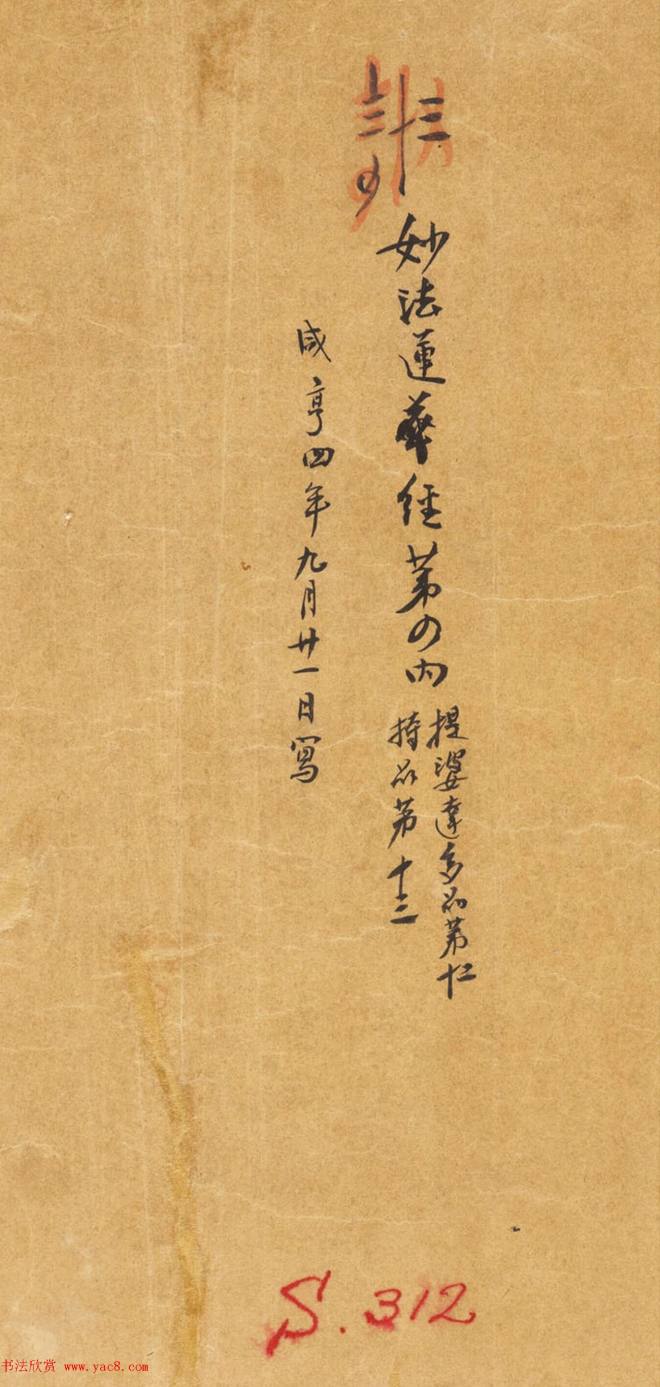 妙法蓮華經第四内
提婆達多品第十二
持品第十三
咸亨四年九月廿一日寫
S.312
书法欣赏 www.yac8.com